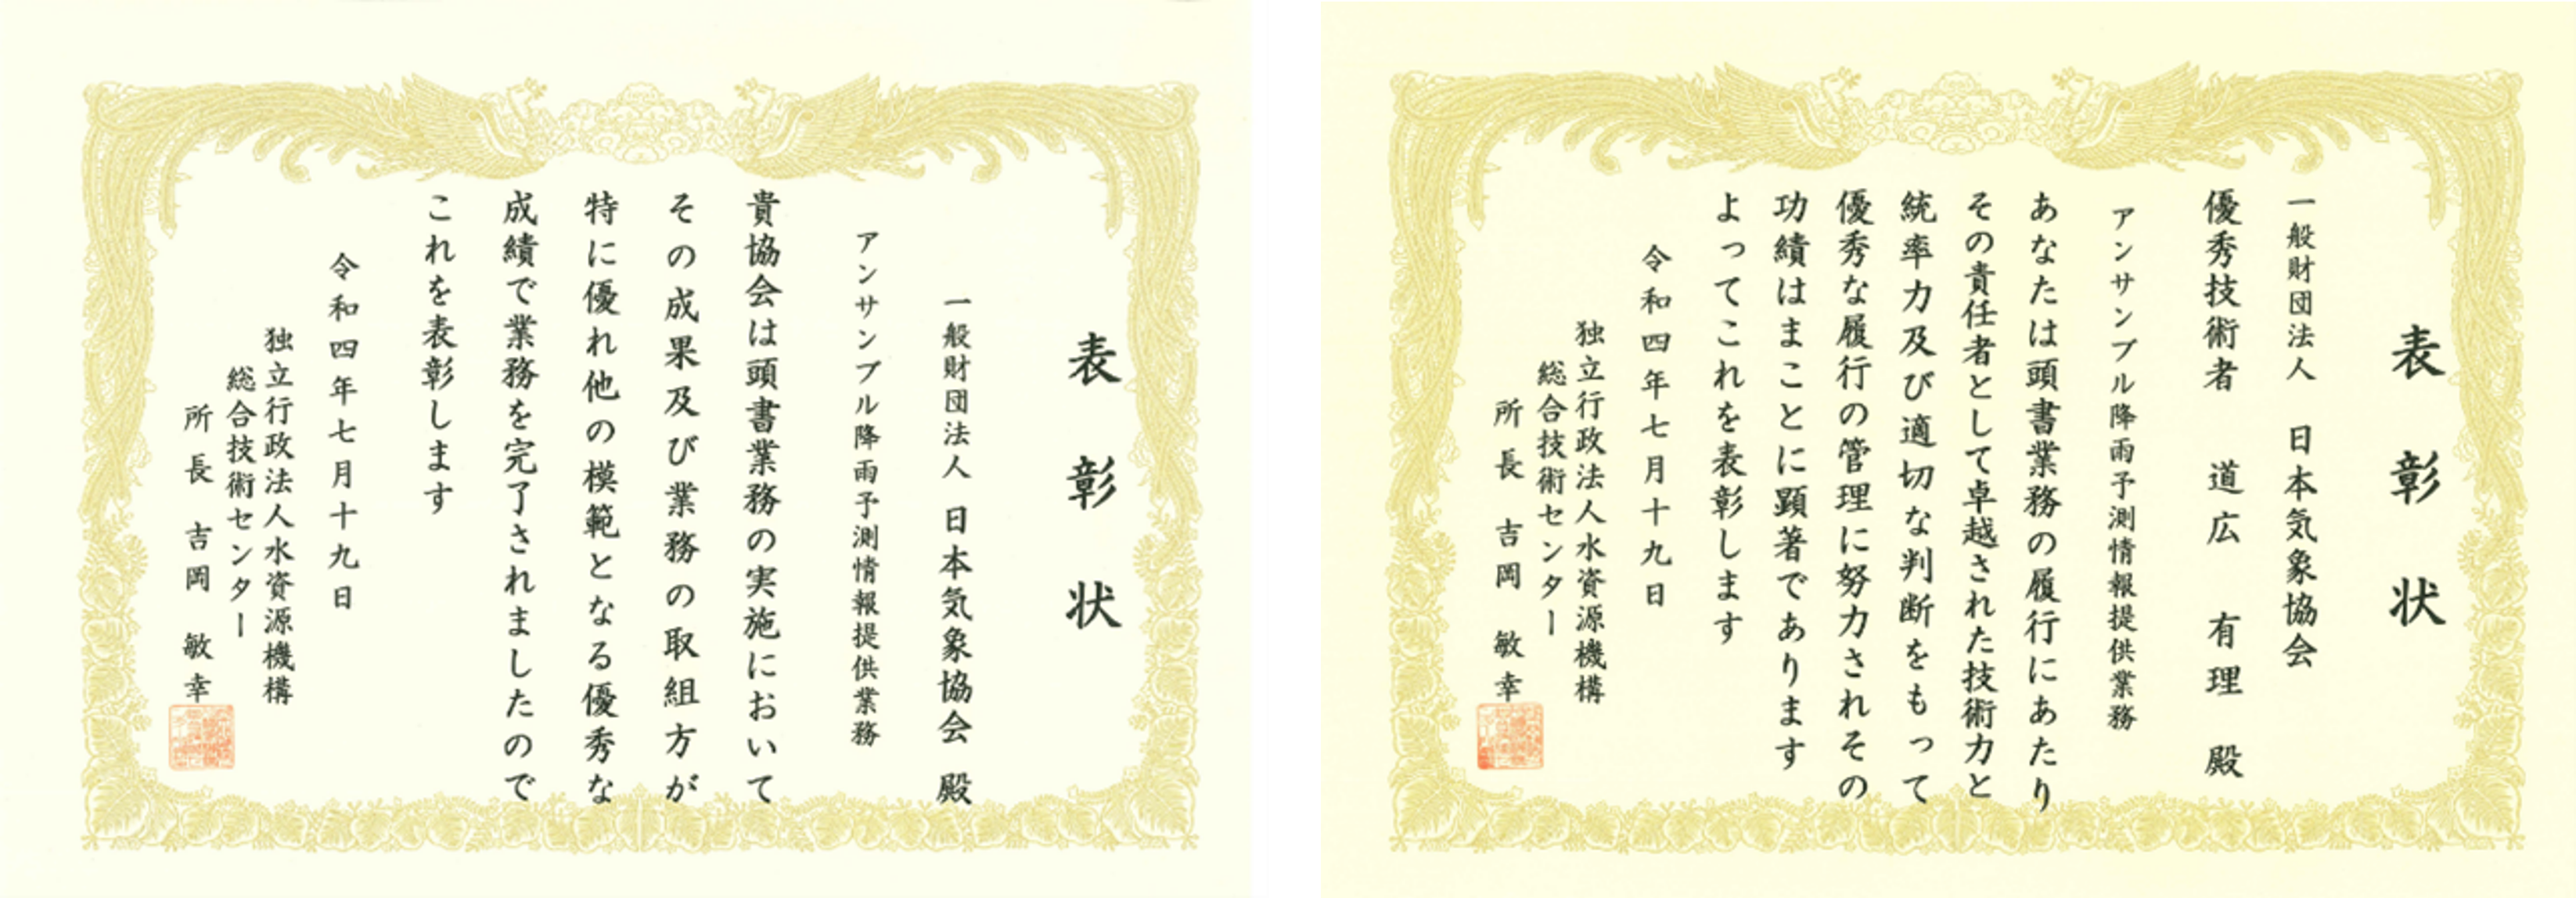 表彰状
一般財団法人 日本気象協会 殿
アンサンブル降雨予測情報提供業務
貴協会は頭書業務の実施において
その成果及び業務の取組方が
特に優れ他の模範となる優秀な
成績で業務を完了されましたので
これを表彰します
令和四年七月十九日
独立行政法人水資源機構
総合技術センター
所長 吉岡 敏幸
表彰状
一般財団法人 日本気象協会
優秀技術者 道広 有理 殿
アンサンブル降雨予測情報提供業務
あなたは頭書業務の履行にあたり
その責任者として卓越された技術力と
統率力及び適切な判断をもって
優秀な履行の管理に努力されその
功績はまことに顕著であります
よってこれを表彰します
令和四年七月十九日
独立行政法人水資源機構
総合技術センター
所長 吉岡 敏幸